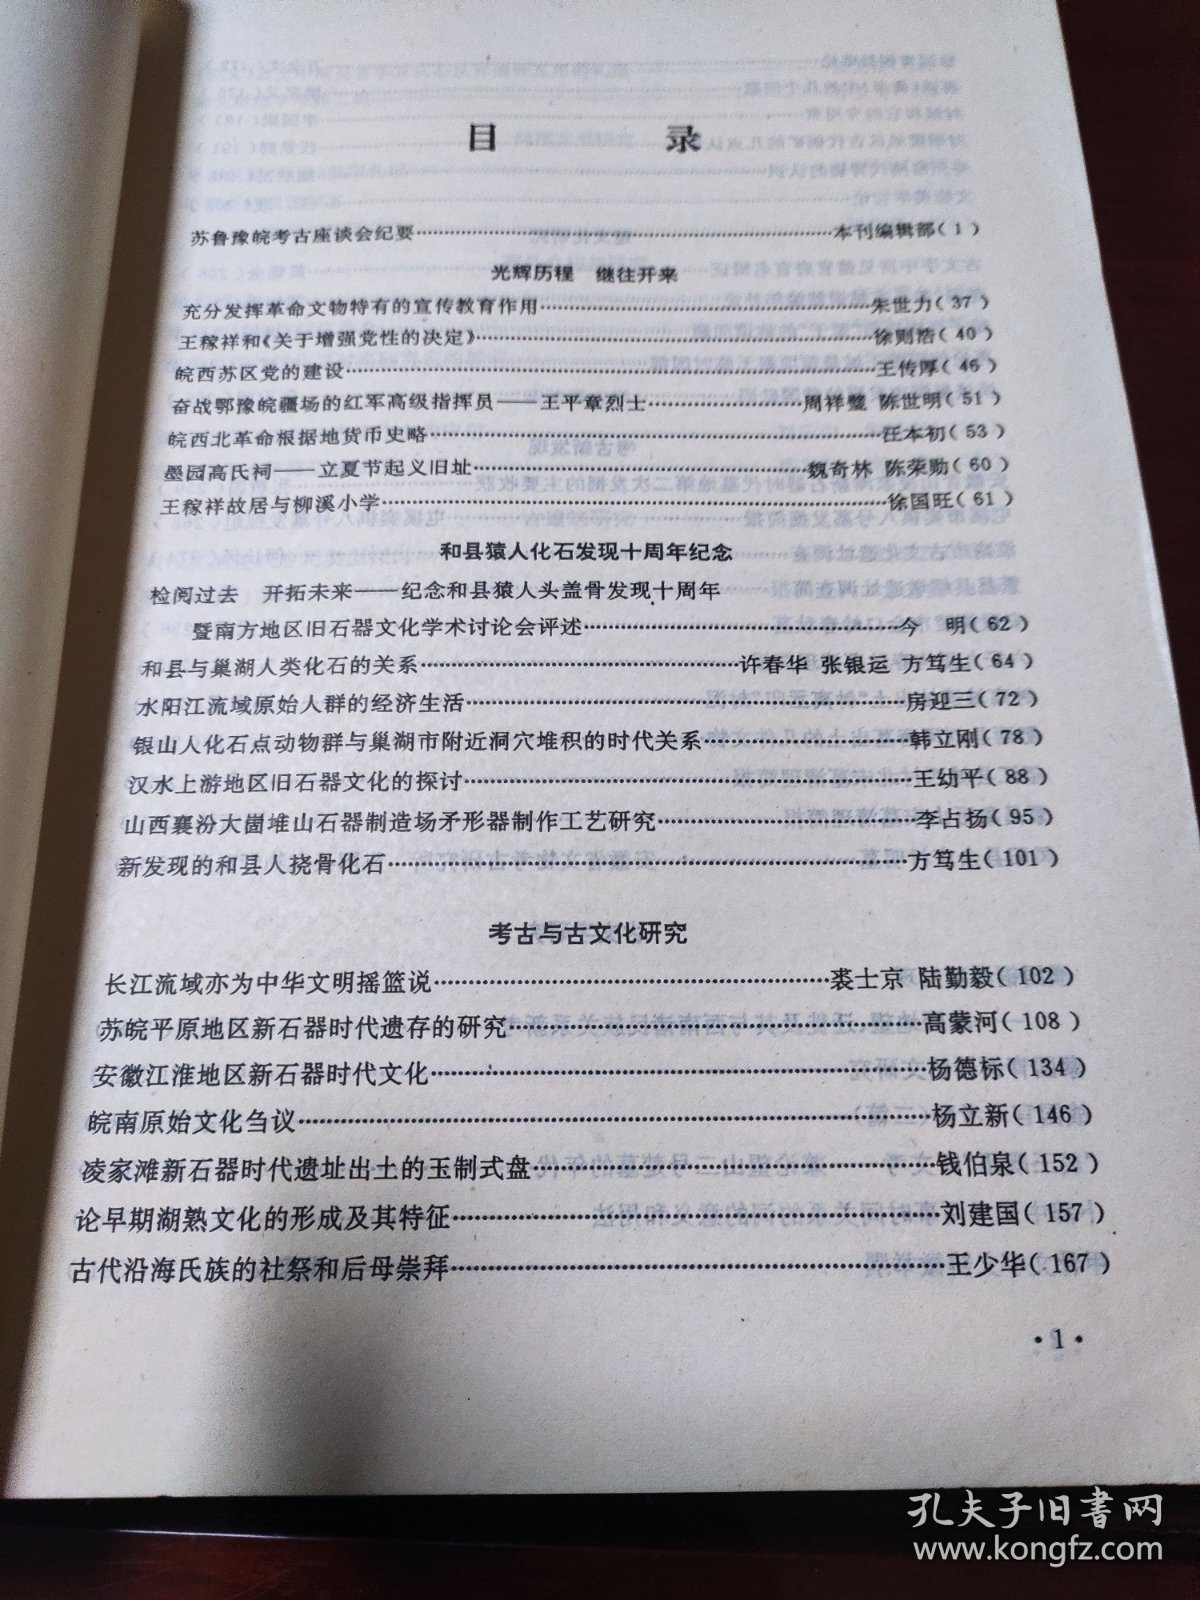 目 录
苏鲁豫皖考古座谈会纪要……本刊编辑部(1)
光辉历程 继往开来
充分发挥革命文物特有的宣传教育作用……朱世力(37)
王稼祥和《关于增强党性的决定》……徐则浩(40)
皖西苏区党的建设……王传厚(46)
奋战鄂豫皖疆场的红军高级指挥员——王平章烈士……周祥 陈世明(51)
皖西北革命根据地货币史略……汪本初(53)
墨园高氏祠——立夏节起义旧址……魏奇林 陈荣勋(60)
王稼祥故居与柳溪小学……徐国旺(61)
和县猿人化石发现十周年纪念
检阅过去 开拓未来——纪念和县猿人头盖骨发现十周年
暨南方地区旧石器文化学术讨论会评述……今 明(62)
和县与巢湖人类化石的关系……许春华 张银运 方笃生(64)
水阳江流域原始人群的经济生活……房迎三(72)
银山人化石点动物群与巢湖市附近洞穴堆积的时代关系……韩立刚(78)
汉水上游地区旧石器文化的探讨……王幼平(88)
山西襄汾大崮堆山石器制造场矛形器制作工艺研究……李占扬(95)
新发现的和县人挠骨化石……方笃生(101)
考古与古文化研究
长江流域亦为中华文明摇篮说……裘士京 陆勤毅(102)
苏皖平原地区新石器时代遗存的研究……高蒙河(108)
安徽江淮地区新石器时代文化……杨德标(134)
皖南原始文化刍议……杨立新(146)
凌家滩新石器时代遗址出土的玉制式盘……钱伯泉(152)
论早期湖熟文化的形成及其特征……刘建国(157)
古代沿海氏族的社祭和后母崇拜……王少华(167)
·1·
孔夫子旧书网
www.kongfz.com